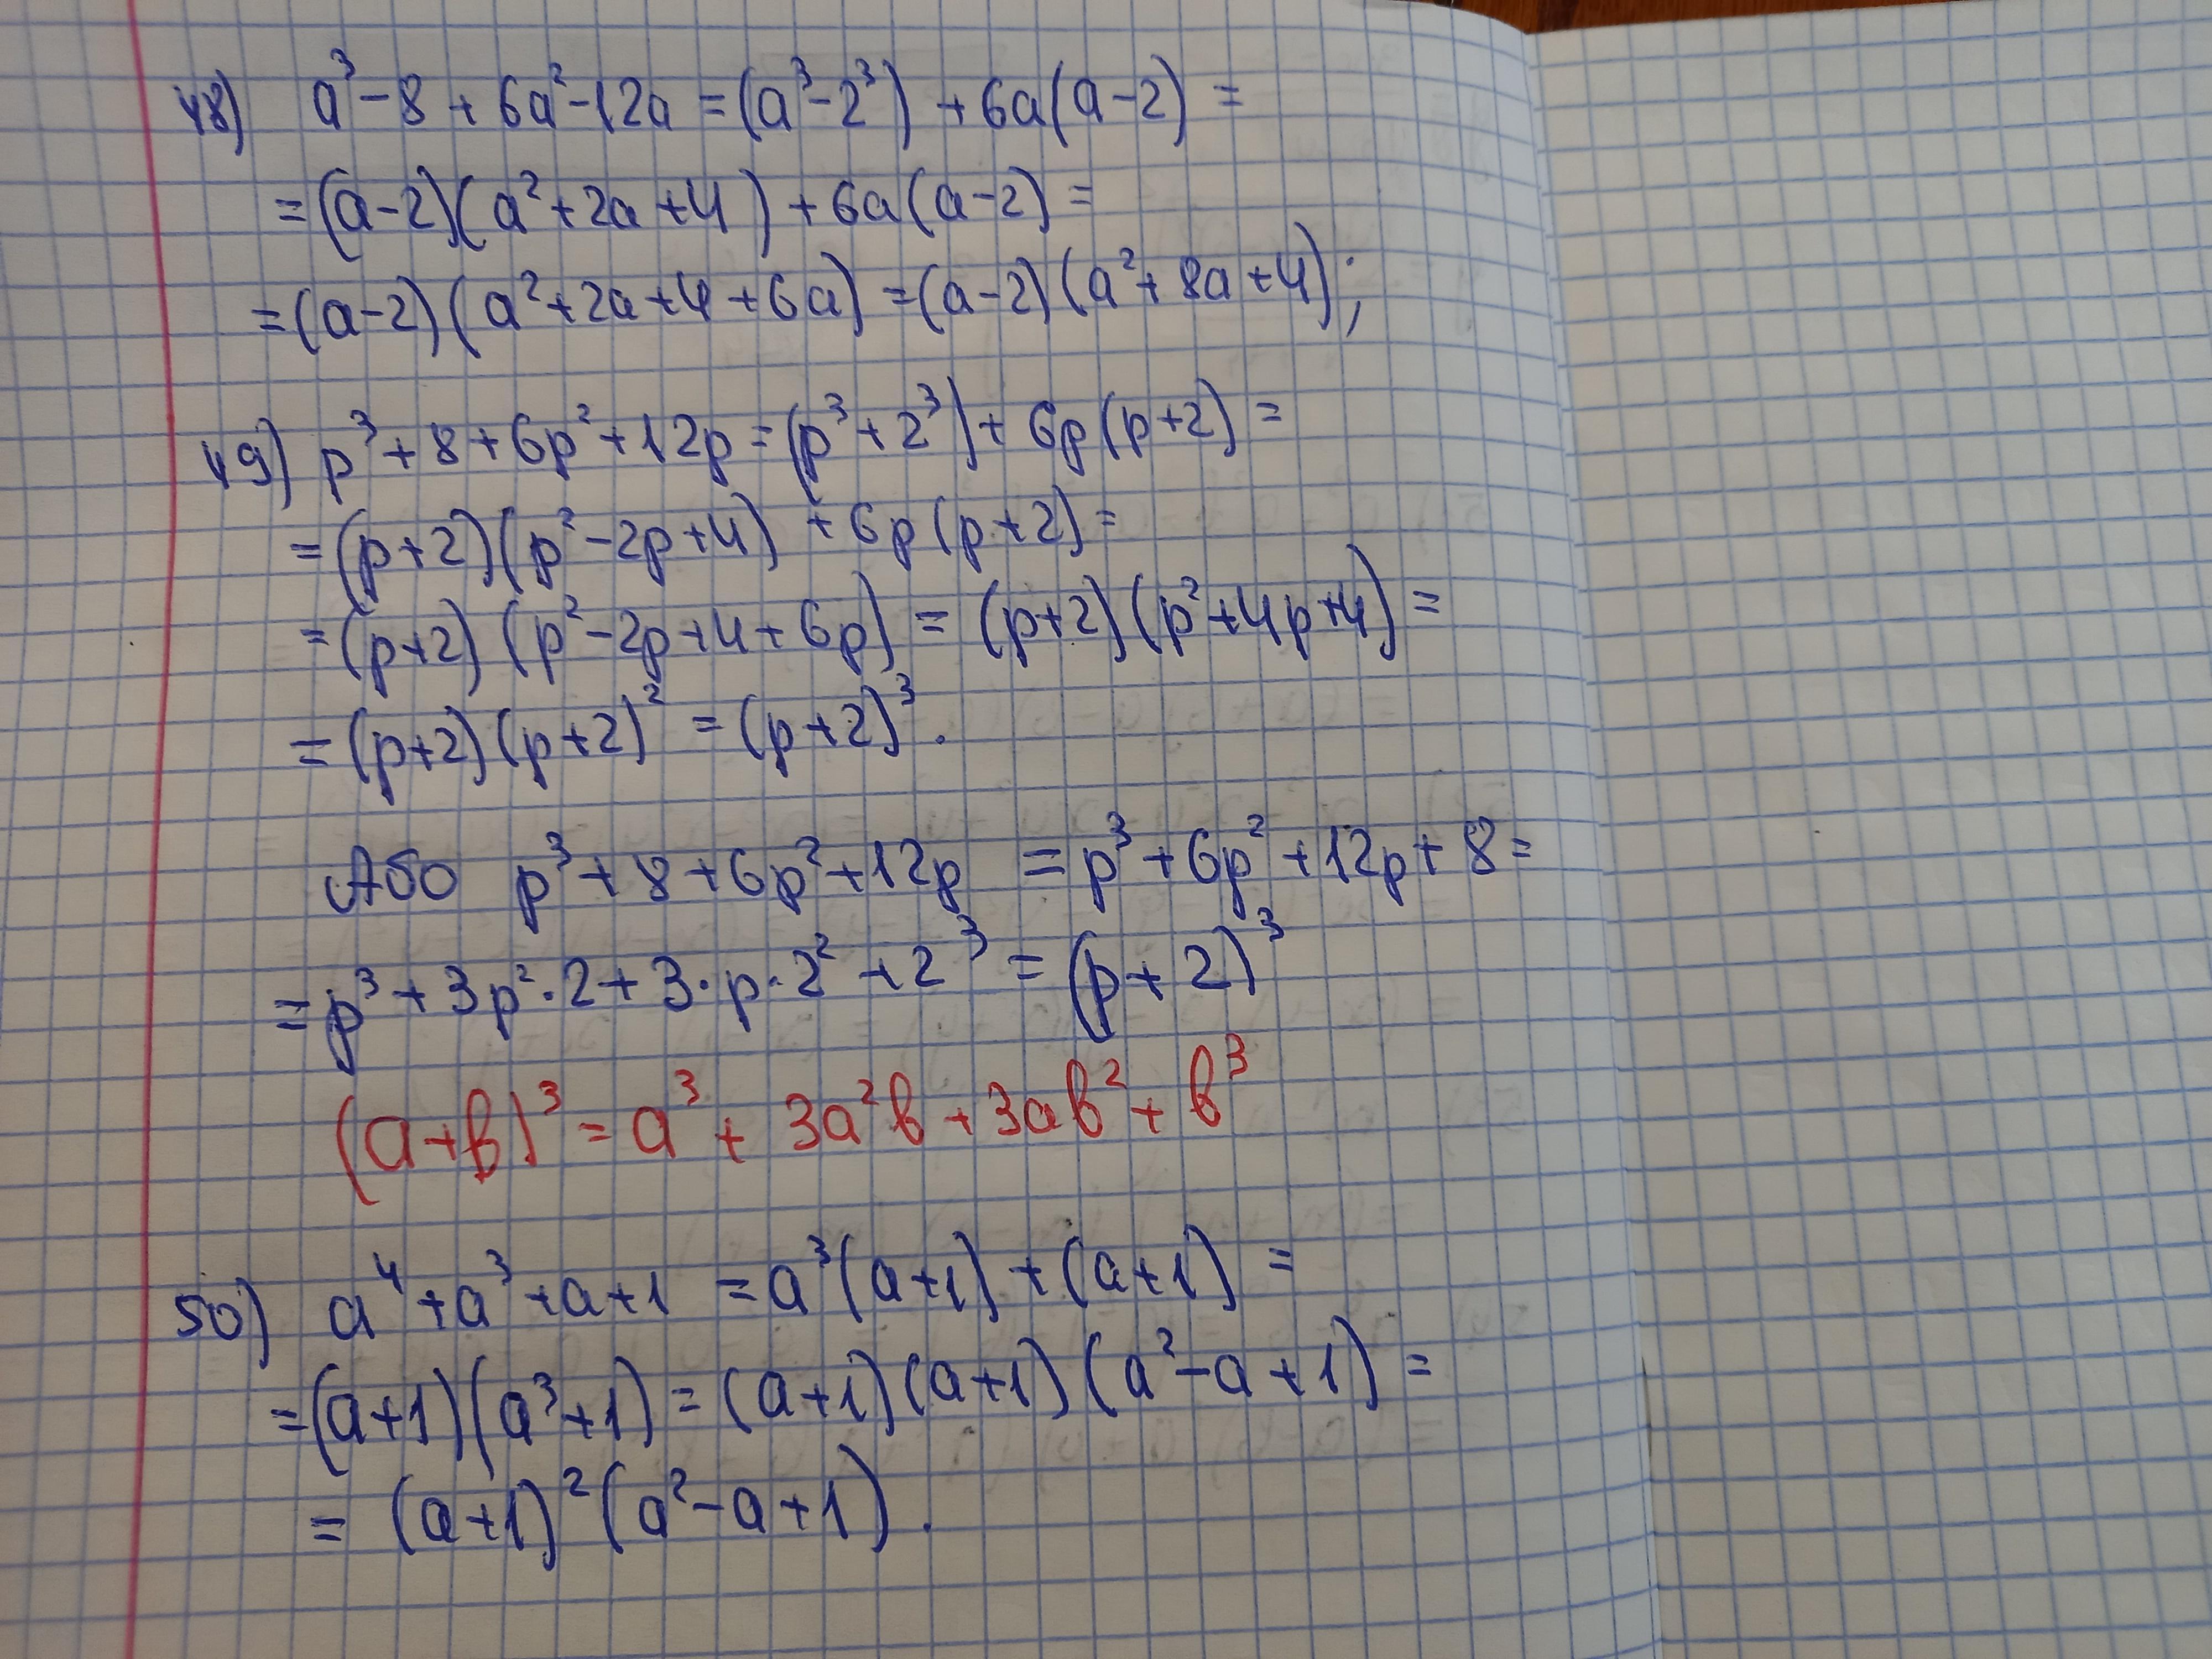 48) a³ - 8 + 6a² - 12a = (a³ - 2³) + 6a(a - 2) =
= (a - 2)(a² + 2a + 4) + 6a(a - 2) =
= (a - 2)(a² + 2a + 4 + 6a) = (a - 2)(a² + 8a + 4);
49) p³ + 8 + 6p² + 12p = (p³ + 2³) + 6p(p + 2) =
= (p + 2)(p² - 2p + 4) + 6p(p + 2) =
= (p + 2)(p² - 2p + 4 + 6p) = (p + 2)(p² + 4p + 4) =
= (p + 2)(p + 2)² = (p + 2)³.
Або p³ + 8 + 6p² + 12p = p³ + 6p² + 12p + 8 =
= p³ + 3p² · 2 + 3 · p · 2² + 2³ = (p + 2)³
(a + b)³ = a³ + 3a²b + 3ab² + b³
50) a⁴ + a³ + a + 1 = a³(a + 1) + (a + 1) =
= (a + 1)(a³ + 1) = (a + 1)(a + 1)(a² - a + 1) =
= (a + 1)²(a² - a + 1).